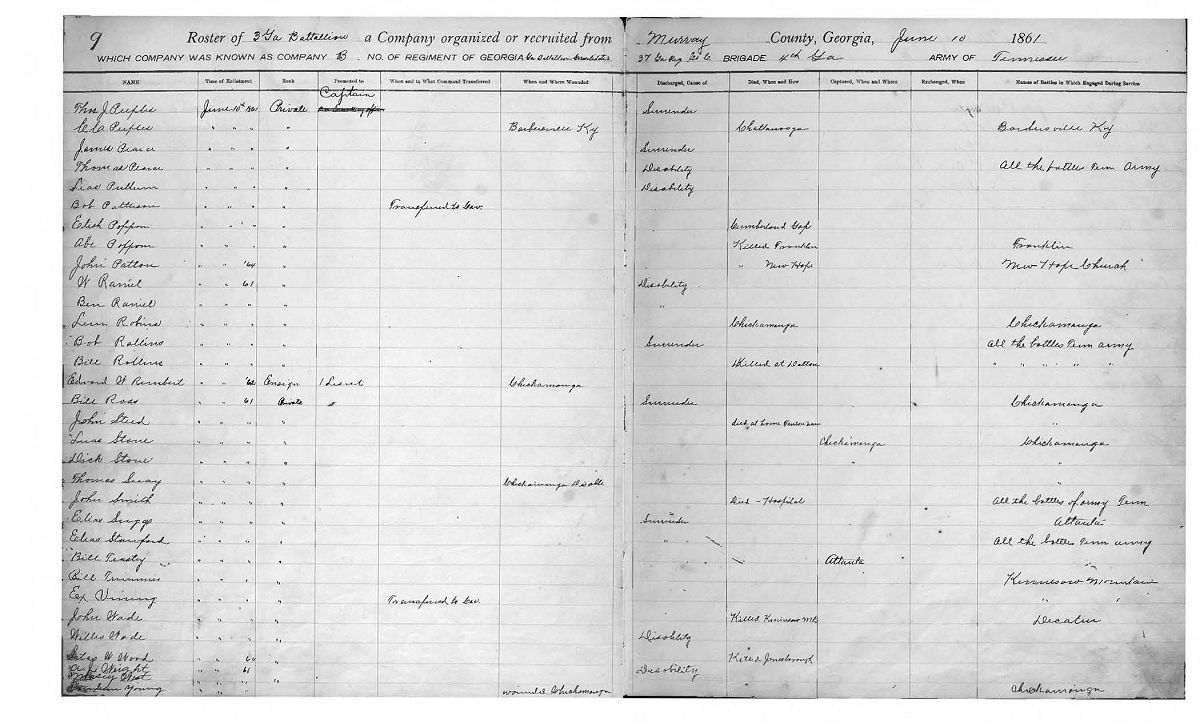 9 Roster of 3 Ga Battallion a Company organized or recruited from Murray County, Georgia, June 10 1861
WHICH COMPANY WAS KNOWN AS COMPANY B. NO. OF REGIMENT OF GEORGIA 37 Ga Reg BRIGADE 4th Ga ARMY OF Tennessee
NAME Time of Enlistment Rank Promoted to When and to What Command Transferred When and Where Wounded Discharged, Cause of Died, When and How Captured, When and Where Exchanged, When Names of Battles in Which Engaged During Service
Captain
Thos J. Peeples June 10th 61 Private Surrender
C C Peeples " " " " Barbersville Ky Chattanooga Bardersville Ky
James Pearce " " " " Surrender
Thomas Pearce " " " " Disability All the battles Tenn Army
Pullum " " " " Disability
Bob Patterson " " " " Transferred to Cav.
Elish Poppom " " " " Cumberland Gap
Abe Poppom " " " " Killed Franklin Franklin
John Patton " " '64 " " New Hope New Hope Church
W Raniel " " 61 " Disability
Ben Raniel " " " " "
Robins " " " " Chickamauga Chickamauga
Bob Rollins " " " " Surrender all the battles Tenn army
Bill Rollins " " " " Killed at Dalton " " " " "
Edward W Rembert " " '62 Ensign 1 Lieut Chickamauga
Bill Ross " " 61 Private Surrender Chickamauga
John Steed " " " " died at home
Stone " " " " Chickamauga Chickamauga
Dick Stone " " " " " "
Thomas " " " " Chickamauga "
John Smith " " " " Died - Hospital all the battles of army Tenn
Elias Suggs " " " " Surrender Attanta
Elias Stanford " " " " " all the battles Tenn army
Bill " " " " Attanta
Bill Timmins " " " " Kennesaw Mountain
Vining " " " " Transferred to Cav. " "
John Wade " " " " Killed Kennesaw Mt Decatur
Willis Wade " " " " Disability
W Wood " " 64 " Killed Jonesborough
Wright " " 61 Disability
West " " " "
Young " " " wounded Chickamauga Chickamauga